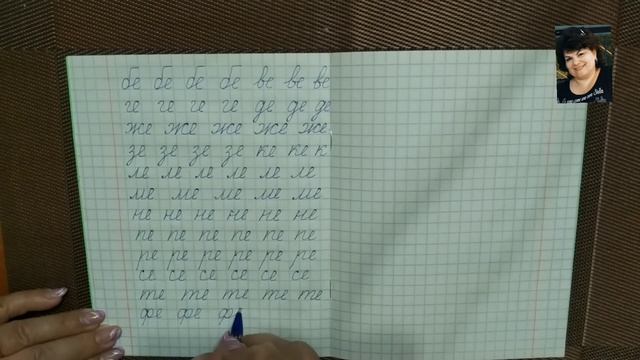 бе бе бе бе ве ве ве
ге ге ге ге де де де
же же же же же
зе зе зе зе ке ке к
ле ле ле ле ле ле
ме ме ме ме ме
не не не не не не
пе пе пе пе пе пе
ре ре ре ре ре ре
се се се се се се
те те те те те
фе фе фе